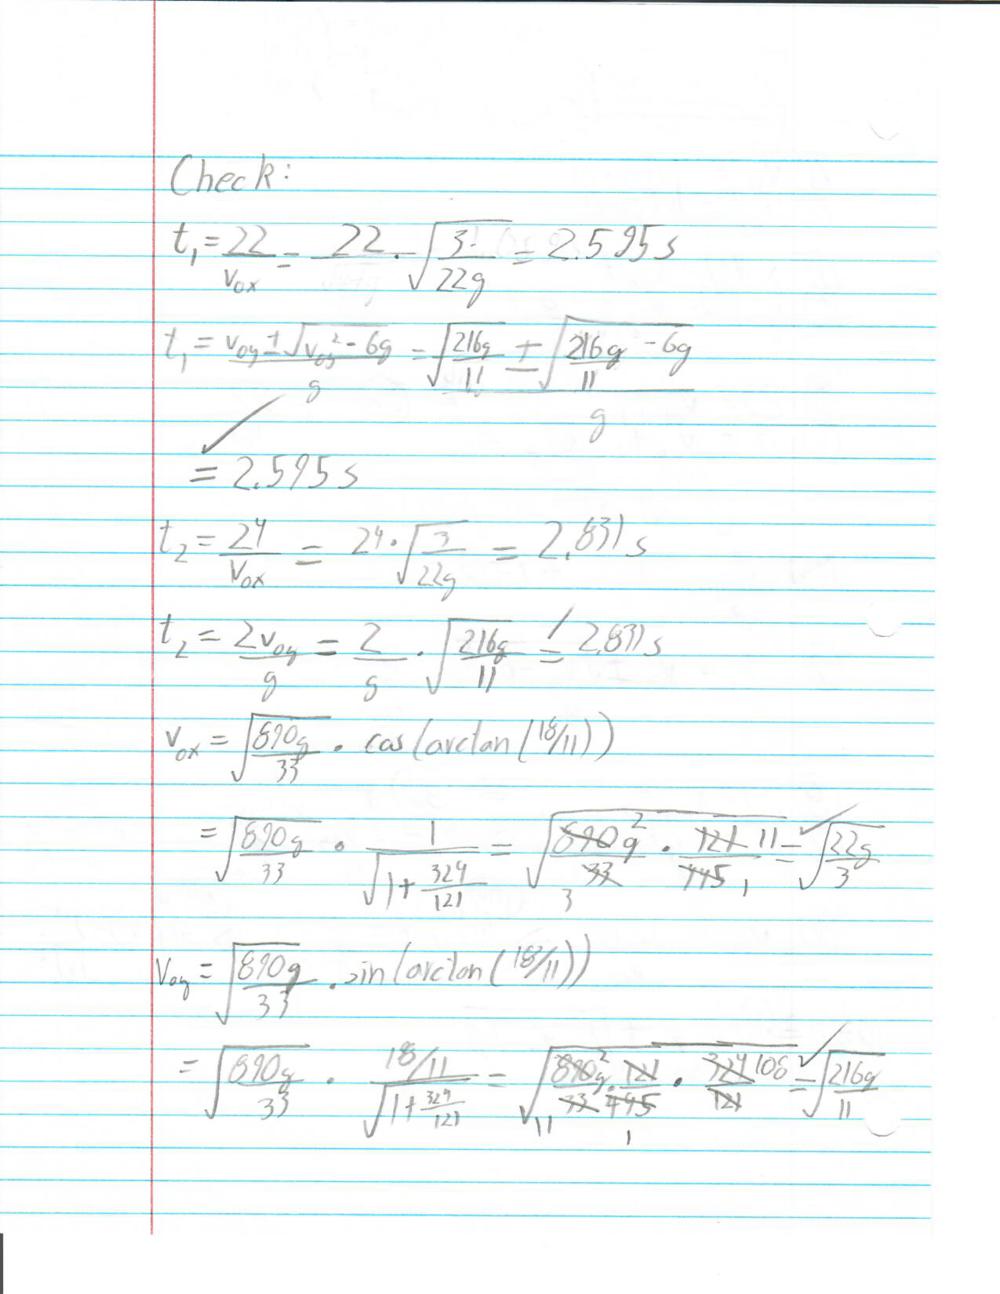 Check:
t₁ = 22/v₀ₓ = 22 · √(3/22g) = 2.595s
t₁ = (v₀y ± √(v₀y² - 6g))/g = (√(216g/11) ± √(216g/11 - 6g))/g
✓= 2.595s
t₂ = 24/v₀ₓ = 24 · √(3/22g) = 2.831s
t₂ = 2v₀y/g = 2/g · √(216g/11) =✓ 2.831s
v₀ₓ = √(890g/33) · cos(arctan(18/11))
= √(890g/33) · 1/√(1 + 324/121) = √(890g/33 2/3 · 121/445 11/1) =✓ √(22g/3)
v₀y = √(890g/33) · sin(arctan(18/11))
= √(890g/33) · (18/11)/√(1 + 324/121) = √(890g/33 2/11 · 121/445 1 · 324/121 108) =✓ √(216g/11)